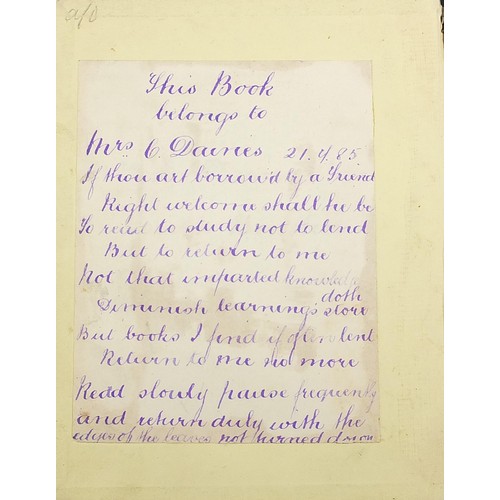 a/0
This Book
belongs to
Mrs. C. Daines 21.4.85.
If thou art borrow'd by a Friend
Right welcome shall he be
To read to study not to lend
But to return to me
Not that imparted knowledge
doth
Diminish learning's store
But books I find if often lent
Return to me no more
Read slouly pause frequently
and return duly with the
edges of the leaves not turned down